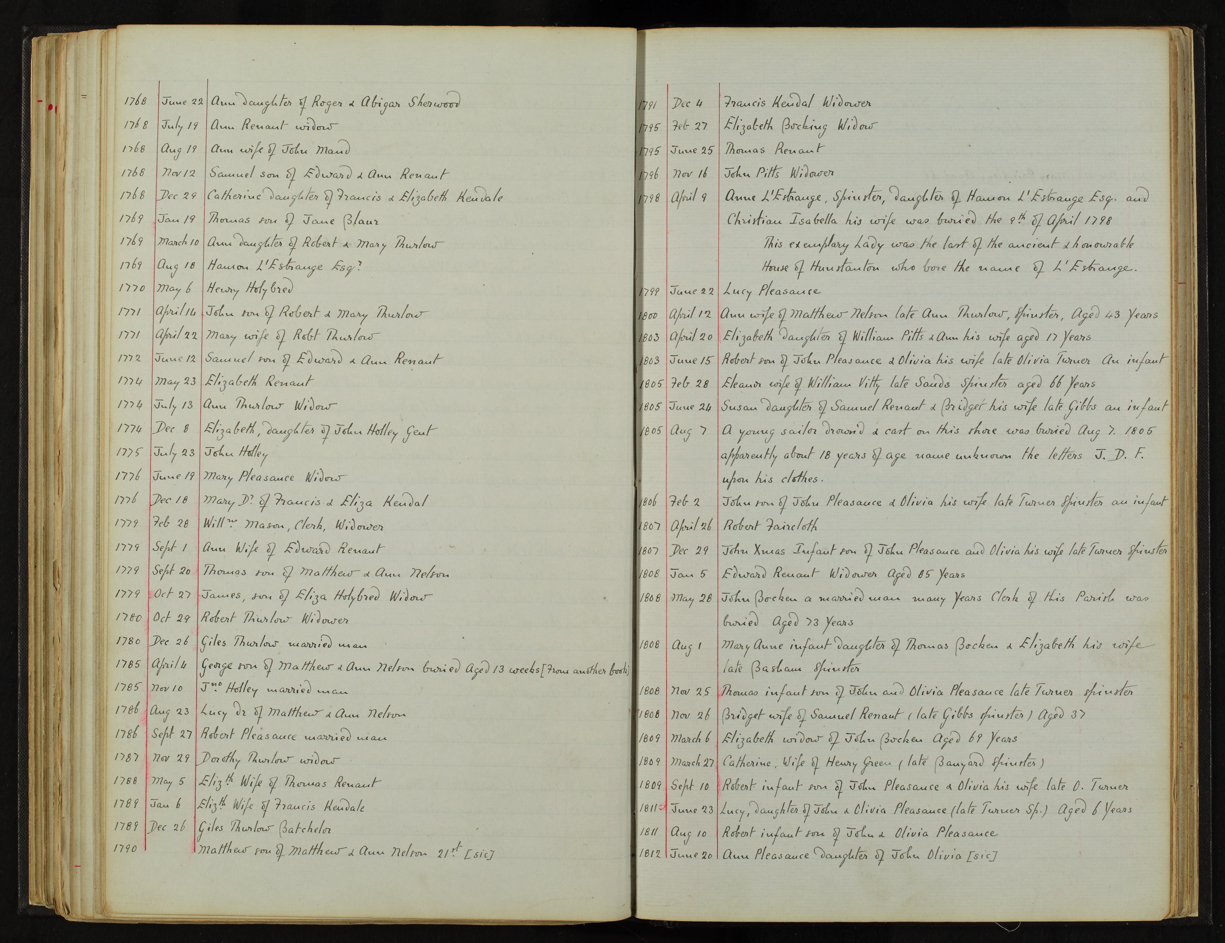 1768 June 22 Ann daughter of Roger & Abigar Sherwood
1768 July 19 Ann Renaut widow
1768 Aug 19 Ann wife of John Mand
1768 Nov 12 Samuel son of Edward & Ann Renaut
1768 Dec 29 Catherine daughter of Francis & Elizabeth Kendale
1769 Jan 19 Thomas son of Jane
1769 March 10 Ann daughter of Robert & Mary Thurlow
1769 Aug 18 Hamon L'Estrange Esqr
1770 May 6 Henry Holybred
1771 April 14 John son of Robert & Mary Thurlow
1771 April 22 Mary wife of Robt Thurlow
1772 June 12 Samuel son of Edward & Ann Renaut
1774 May 23 Elizabeth Renaut
1774 July 13 Ann Thurlow Widow
1774 Dec 8 Elizabeth, daughter of John Holley Gent
1775 July 23 John Holley
1776 June 19 Mary Pleasance Widow
1776 Dec 18 Mary Dr of Francis & Eliza Kendal
1779 Feb 28 Willm Mason, Clerk, Widower
1779 Sept 1 Ann Wife of Edward Renaut
1779 Sept 20 Thomas son of Matthew & Ann Nelson
1779 Oct 27 James, son of Eliza Holybred Widow
1780 Oct 29 Robert Thurlow Widower
1780 Dec 26 Giles Thurlow married man
1785 April 4 George son of Matthew & Ann Nelson buried Aged 13 weeks [From another book]
1785 Nov 10 Jno Holley married man
1786 Aug 23 Lucy dr of Matthew & Ann Nelson
1786 Sept 27 Robert Pleasance married man
1787 Nov 29 Dorothy Thurlow widow
1788 May 5 Elizth Wife of Thomas Renaut
1789 Jan 6 Elizth Wife of Francis Kendale
1789 Dec 26 Giles Thurlow Batchelor
1790 Matthew son of Matthew & Ann Nelson 21st [sic]
1791 Dec 4 Francis Kendal Widower
1795 Feb 27 Elizabeth Bocking Widow
1795 June 25 Thomas Renaut
1796 Nov 16 John Pitts Widower
1798 April 9 Anne L'Estrange, Spinster, daughter of Hamon L'Estrange Esq. and
Christian Isabella his wife was buried the 9th of April 1798
This exemplary Lady was the last of the ancient & honourable
House of Hunstanton who bore the name of L'Estrange.
1799 June 22 Lucy Pleasance
1800 April 12 Ann wife of Matthew Nelson late Ann Thurlow, spinster, Aged 43 Years
1803 April 20 Elizabeth daughter of William Pitts & Ann his wife aged 17 Years
1803 June 15 Robert son of John Pleasance & Olivia his wife late Olivia Turner An infant
1805 Feb 28 Eleanor wife of William Vitty late Sands Spinster aged 66 Years
1805 June 24 Susan daughter of Samuel Renaut & Bridget his wife late Gibbs an infant
1805 Aug 7 A young sailor drown'd & cast on this shore was buried Aug 7. 1805
apparently about 18 years of age name unknown the letters J. D. F.
upon his clothes.
1806 Feb 2 John son of John Pleasance & Olivia his wife late Turner spinster an infant
1807 April 26 Robert Faircloth
1807 Dec 29 John Xmas Infant son of John Pleasance and Olivia his wife late Turner spinster
1808 Jan 5 Edward Renaut Widower Aged 85 Years
1808 May 28 John Bocken a married man many Years Clerk of this Parish was
buried Aged 73 Years
1808 Aug 1 Mary Anne infant daughter of Thomas Bocken & Elizabeth his wife
late Basham spinster
1808 Nov 25 Thomas infant son of John and Olivia Pleasance late Turner spinster
1808 Nov 26 Bridget wife of Samuel Renaut (late Gibbs spinster) Aged 37
1809 March 6 Elizabeth widow of John Bocken Aged 69 Years
1809 March 27 Catherine, Wife of Henry Green (late Banyard spinster)
1809 Sept 10 Robert infant son of John Pleasance & Olivia his wife late O. Turner
1811 June 23 Lucy, daughter of John & Olivia Pleasance (late Turner Sp.) Aged 6 Years
1811 Aug 10 Robert infant son of John & Olivia Pleasance
1812 June 20 Ann Pleasance daughter of John Olivia [sic]